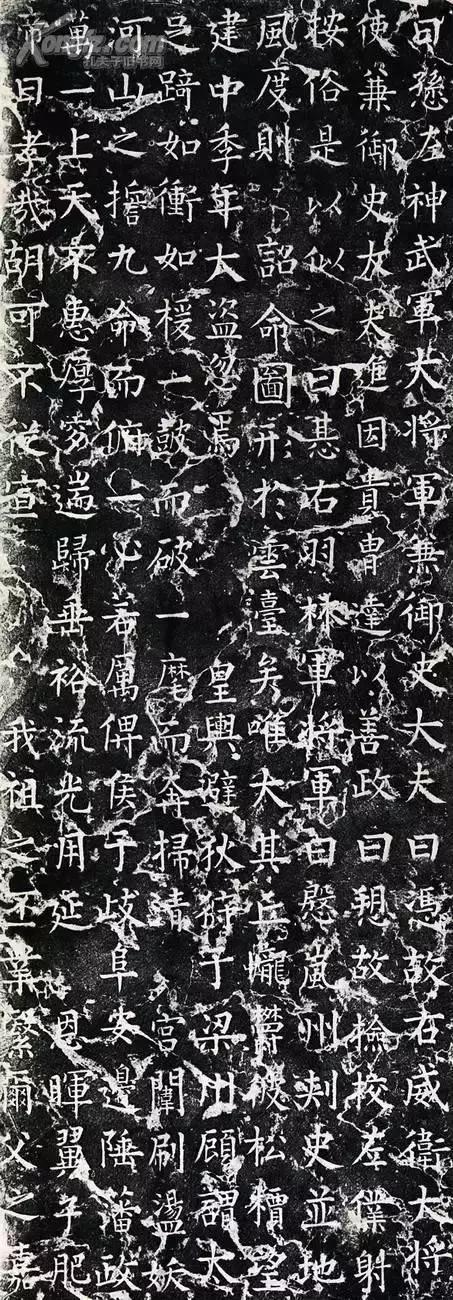 曰愻左神武軍大將軍兼御史大夫曰馮故右威衛大將
使兼御史大夫進因貴胄達以善政曰愬故撿挍左僕射
按俗是以似之曰惎右羽林軍將軍曰慇嵐州刾史並地
風度則詔命圖形於雲臺矣唯大其丘壠欝彼松檟望
建中季年大盗忽焉皇輿避狄狩于梁州顧謂太
足踦如衝如援一皷而破一麾而奔掃清宮闈刷盪妖
河山之擔九命而俯一心若厲俾侯于歧阜安邊陲蕃政
萬一上天不惠厚穸遄歸垂裕流光用延恩暉翼子肥
帝曰孝哉胡可不從宣我祖之丕業繄爾父之嘉
Kongfz.com
孔夫子旧书网